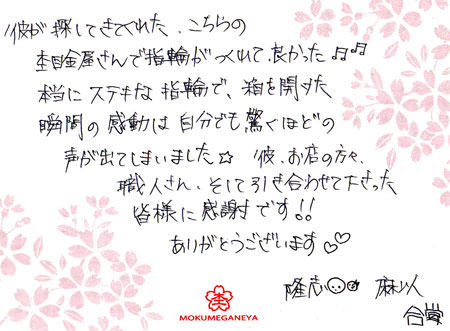 彼が探してきてくれた、こちらの
杢目金屋さんで指輪がつくれて良かった♫♫
本当にステキな指輪で、箱を開けた
瞬間の感動は自分でも驚くほどの
声が出てしまいました☆ 彼、お店の方々、
職人さん、そして引き合わせて下さった
皆様に感謝です!!
ありがとうございます♡♡
隆志
MOKUMEGANEYA